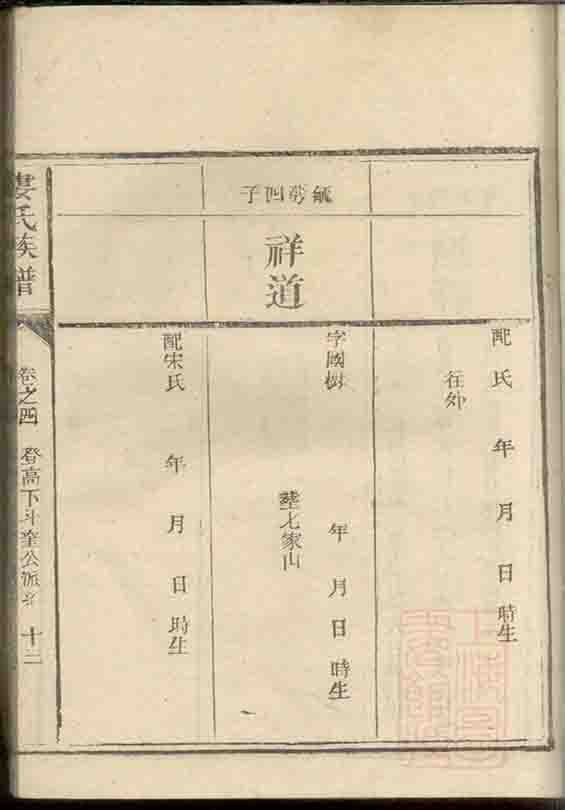 配氏 年 月 日 時生
在外
毓芳四子
祥道
字國樹 年 月 日 時生
塟七家山
配宋氏 年 月 日 時生
婁氏族譜
卷之四 登高下斗奎公派 十三